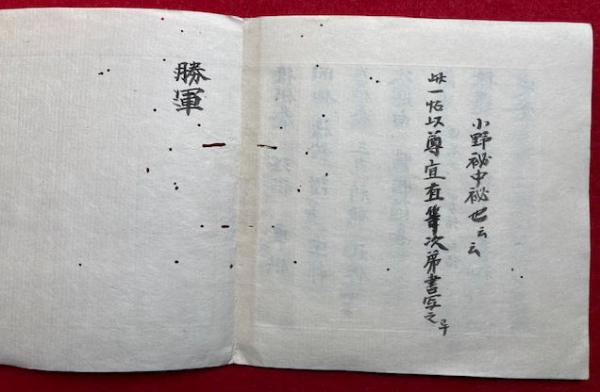 小野秘中秘也云云
此一帖以尊宜直筆次第書写之
勝軍